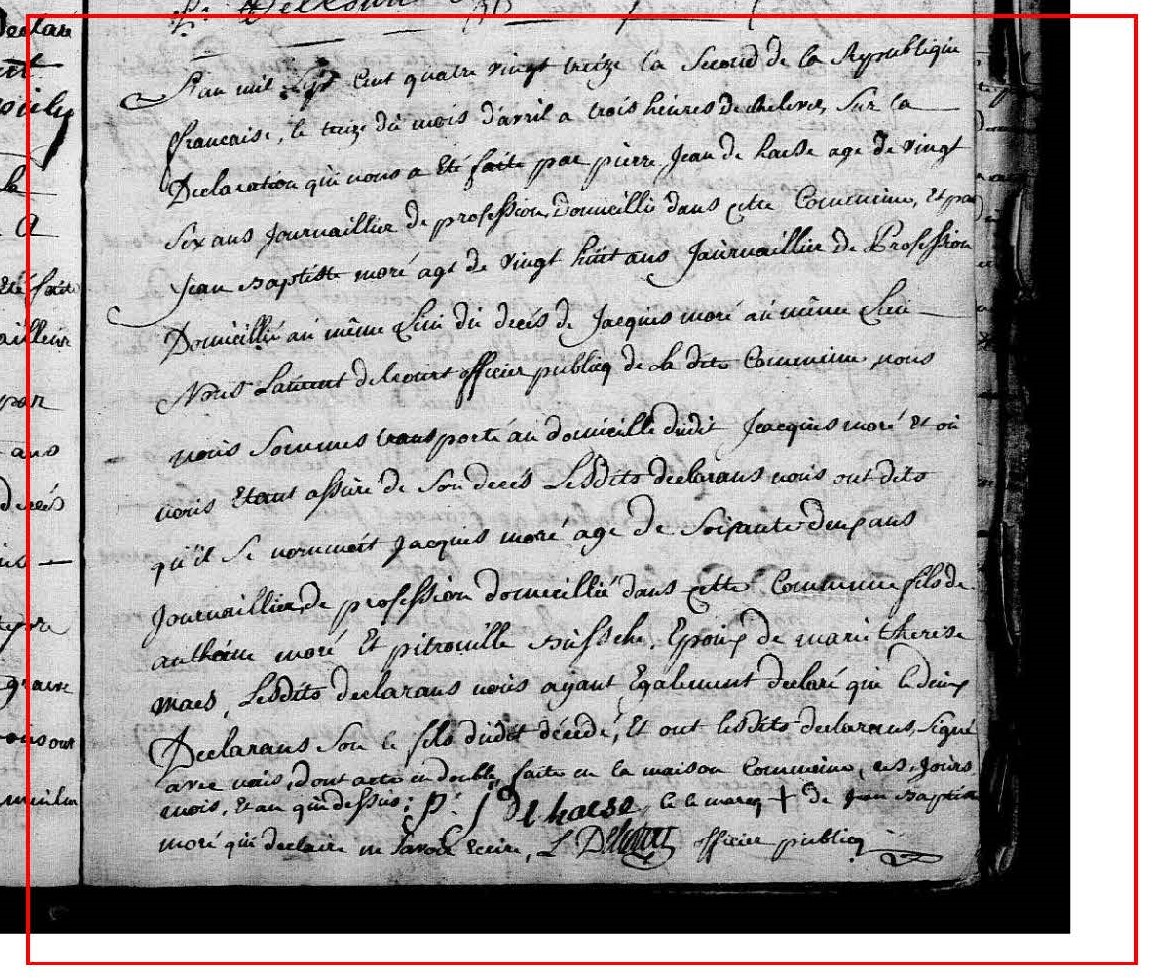 L'an mil Sept Cent quatre vingt treize la Second de la Republique
francaise, le treize du mois d'avril a trois heures de relevee, Sur la
Declaration qui nous a Eté faite par pierre Jean de haese age de vingt
Six ans Journaillier de profession, Domicillie dans cette Commune, Et par
Jean Baptiste moré age de vingt huit ans Journaillier de Profession
Domicillié au même Lieu du decés de Jacques moré au même Lieu
Nous Laurent delcourt officier publicq de la dite Commune, nous
nous Sommes transporté au domicille dudit Jacques moré et ou
nous Etant assure de Son decés Lesdits declarans nous ont dits
qu'il Se nommoit Jacques moré age de Soixante deux ans
Journaillier de profession domicillié dans cette Commune fils de
anthoine moré Et pitronille Epoux de marie therese
maes, Lesdits declarans nous ayant Egalement declaré que le deux
Declarans Son le fils dudit décedé, Et ont lesdits declarans, Signé
avec nous, dont acte en double, faite en la maison Commune, les, Jours
mois, Et an que dessus; P: J De haese le marq + de Jean Baptiste
moré qui declaire ne Savoir Ecrire, L Delcourt officier publicq